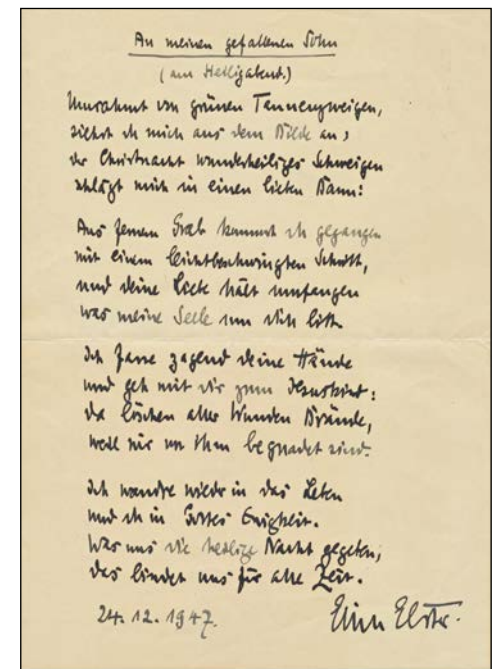 An meinen gefallenen Sohn
(am Heiligabend.)
Umrahmt von grünen Tannenzweigen,
siehst du mich aus dem Bilde an,
der Christnacht wunderheiliges Schweigen
schlägt mich in einen lieben Bann:
Aus fernem Grab kommst du gegangen
mit einem leichtbeschwingten Schritt,
und deine Liebe hält umfangen
was meine Seele um dich litt.
Ich fasse zagend deine Hände
und geh mit dir zum Jesuskind:
da löschen aller Wunden Brände,
weil wir von Ihm begnadet sind.
Ich wandre wieder in das Leben
und du in Gottes Ewigkeit.
Was uns die heilige Nacht gegeben,
das bindet uns für alle Zeit.
24.12.1947.